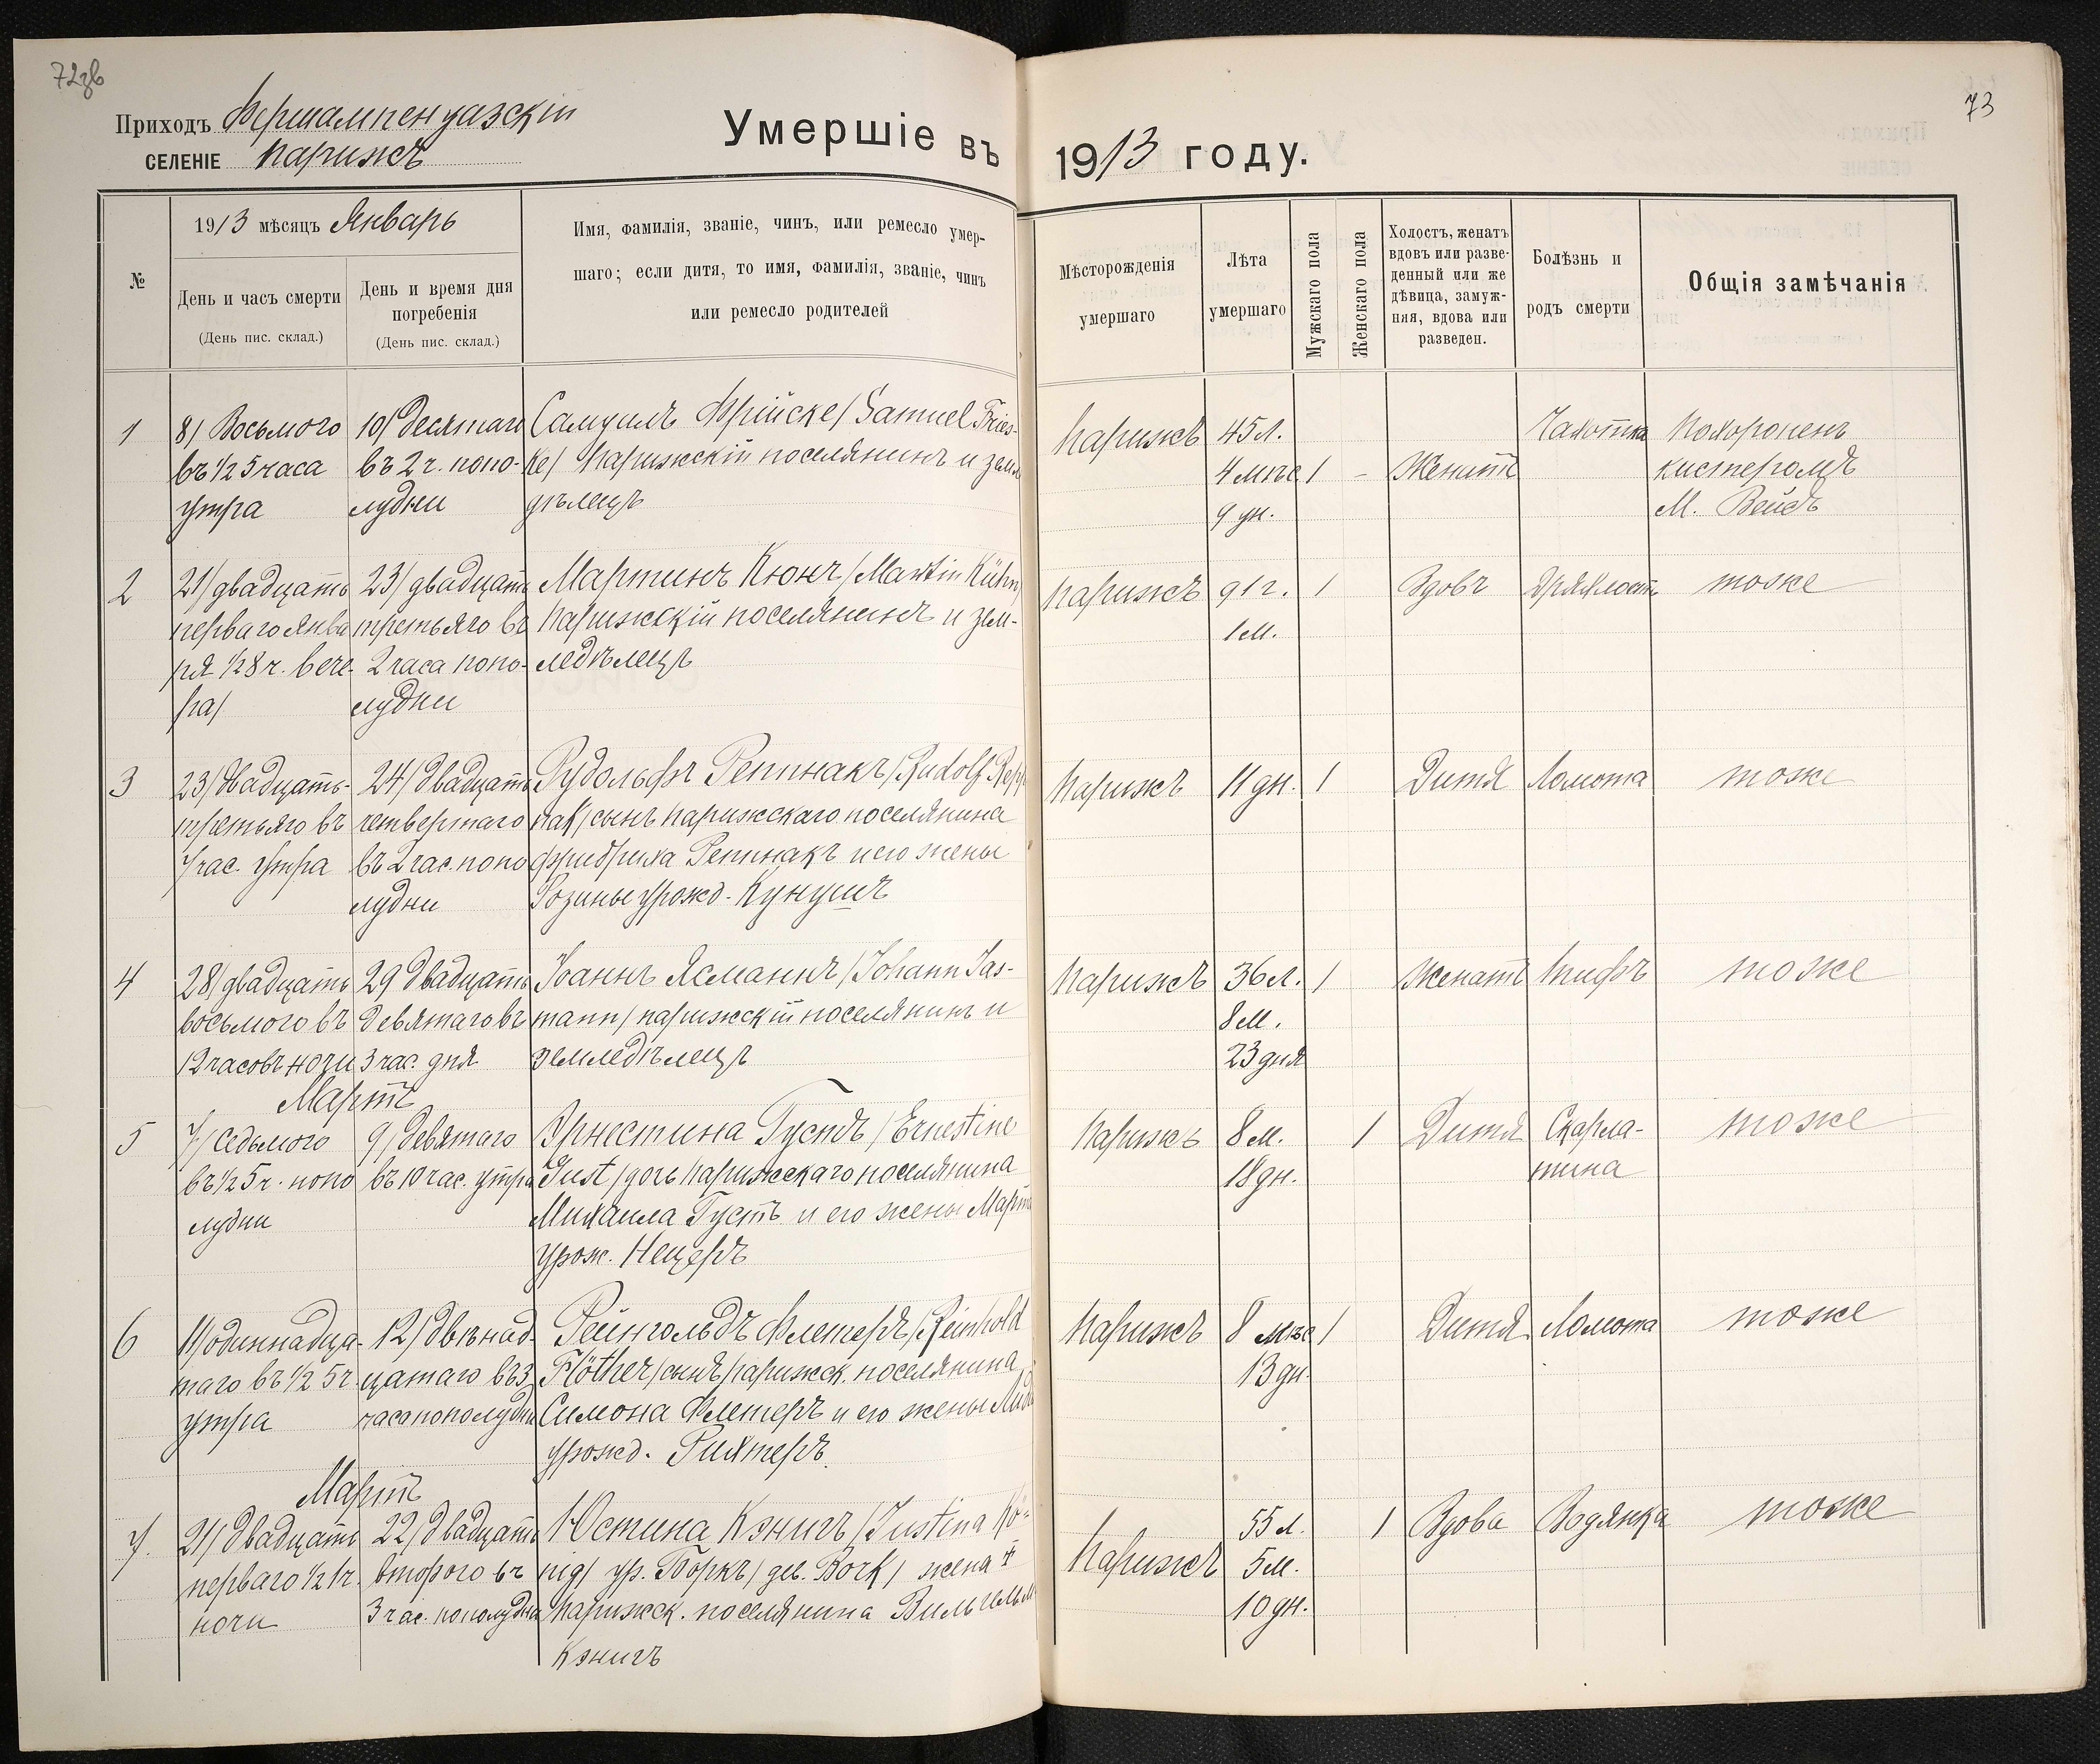 72об
73
Приходъ Фершампенуазскій
СЕЛЕНІЕ Парижъ
Умершіе въ 1913 году.
№
1913 мѣсяцъ Январь
День и часъ смерти
(День пис. склад.)
День и время дня
погребенія
(День пис. склад.)
Имя, фамилія, званіе, чинъ, или ремесло умер-
шаго; если дитя, то имя, фамилія, званіе, чинъ
или ремесло родителей
Мѣсторожденія
умершаго
Лѣта
умершаго
Мужскаго пола
Женскаго пола
Холостъ, женатъ
вдовъ или разве-
денный или же
дѣвица, замуж-
няя, вдова или
разведен.
Болѣзнь и
родъ смерти
Общія замѣчанія
1
8/ Восьмого
въ ½ 5 часа
утра
10/ Десятаго
въ 2 ч. попо-
лудни
Самуилъ Фрійске / Samuel Fries-
ke/ Парижскій поселянинъ и земле
дѣлецъ
Парижъ
45 л.
4 мѣс
9 дн.
1
-
Женатъ
Чахотка
Похороненъ
кистеромъ
М. Вейсъ
2
21/ двадцать
перваго Янва
ря ½ 8 ч. вече-
ра/
23/ двадцать
третьяго въ
2 часа попо-
лудни
Мартинъ Кюнъ / Martin Kühn/
Парижскій поселянинъ и зем-
ледѣлецъ
Парижъ
91 г.
1 м.
1
Вдовъ
Дряхлость
тоже
3
23/ Двадцать-
третьяго въ
7 час. утра
24/ Двадцать
четвертаго
въ 2 час. попо
лудни
Рудольфъ Репнакъ / Rudolf Repp
nak/ сынъ парижскаго поселянина
Фридриха Репнакъ и его жены
Розины урожд. Кунушъ
Парижъ
11 дн.
1
Дитя
Ломота
тоже
4
28/ двадцать
восьмого въ
12 часовъ ночи
29 Двадцать
девятаго въ
3 час. дня
Іоаннъ Ясманнъ / Johann Jas-
mann/ парижскій поселянинъ и
земледѣлецъ
Парижъ
36 л.
8 м.
23 дня
1
Женатъ
Тифъ
тоже
Мартъ
5
7/ Седьмого
въ ½ 5 ч. попо
лудни
9/ Девятаго
въ 10 час. утра
Эрнестина Густъ / Ernestine
Just/ дочь парижскаго поселянина
Михаила Густъ и его жены Марты
урож. Нецеръ
Парижъ
8 м.
18 дн.
1
Дитя
Скарла-
тина
тоже
6
11/ одиннадца-
таго въ ½ 5 ч
утра
12/ Двѣнад-
цатаго въ 3
часа пополудни
Рейнгольдъ Флетеръ / Reinhold
Flöther/ сынъ парижск. поселянина
Симона Флетеръ и его жены
урожд. Рихтеръ.
Парижъ
8 мѣс
13 дн.
1
Дитя
Ломота
тоже
Мартъ
7.
21/ Двадцать
перваго ½ 1 ч.
ночи
22/ Двадцать
второго въ
3 час. пополудни
Юстина Кэнигъ / Justina Kö-
nig/ ур. Боркъ / geb. Bork/ жена †
парижск. поселянина Вильгельм
Кэнигъ
Парижъ
55 л.
5 м.
10 дн.
1
Вдова
Водянка
тоже